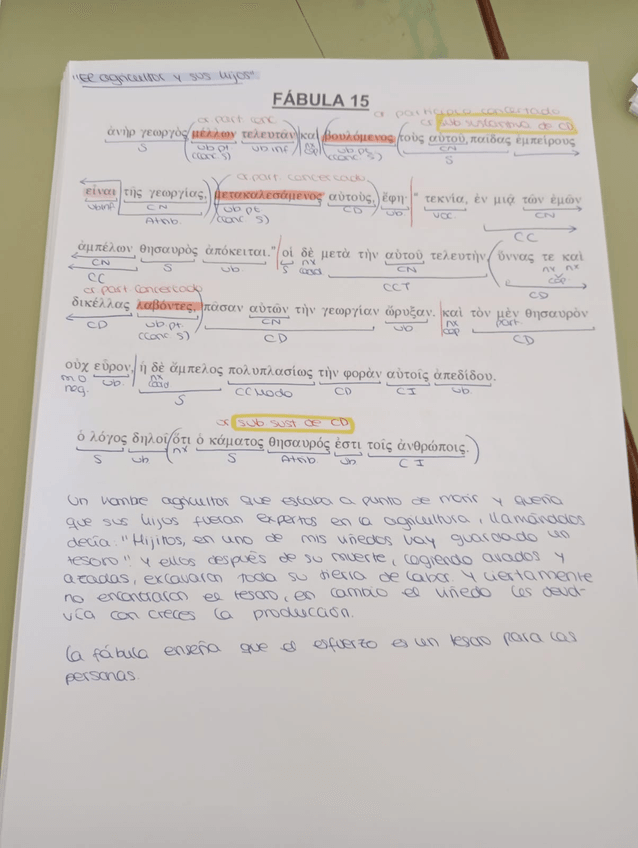 "El agricultor y sus hijos"
FÁBULA 15
or part. conc or participio concertado
or sub sustantiva de CD
ἀνὴρ γεωργὸς μέλλων τελευτᾶν καὶ βουλόμενος τοὺς αὐτοῦ παῖδας ἐμπείρους
S vb. pt vb. inf nx cop vb. pt CN
(conc. S) (conc. S) S
or part. concertado
εἶναι τῆς γεωργίας, μετακαλεσάμενος αὐτούς, ἔφη· "τεκνία, ἐν μιᾷ τῶν ἐμῶν
vb inf CN vb pt CD vb. voc. CN
Atrib. (conc S) CC
ἀμπέλων θησαυρὸς ἀπόκειται." οἱ δὲ μετὰ τὴν αὐτοῦ τελευτὴν ὕννας τε καὶ
CN S vb. S nx coord CN nx nx
CC CCT cop. CD
or part. concertado
δικέλλας λαβόντες, πᾶσαν αὐτῶν τὴν γεωργίαν ὤρυξαν. καὶ τὸν μὲν θησαυρὸν
CD vb. pt. CN vb nx part.
(conc S) CD cop CD
οὐχ εὗρον, ἡ δὲ ἄμπελος πολυπλασίως τὴν φορὰν αὐτοῖς ἀπεδίδου.
mo vb. nx CCModo CD CI vb.
neg. coord S
or sub sust de CD
ὁ λόγος δηλοῖ ὅτι ὁ κάματος θησαυρός ἐστι τοῖς ἀνθρώποις.
S vb nx S Atrib. vb CI
Un hombre agricultor que estaba a punto de morir y quería
que sus hijos fueran expertos en la agricultura, llamándolos
decía: "Hijitos, en uno de mis viñedos hay guardado un
tesoro". Y ellos después de su muerte, cogiendo arados y
azadas, excavaron toda su tierra de labor. Y ciertamente
no encontraron el tesoro, en cambio el viñedo les devol-
vía con creces la producción.
La fábula enseña que el esfuerzo es un tesoro para las
personas.